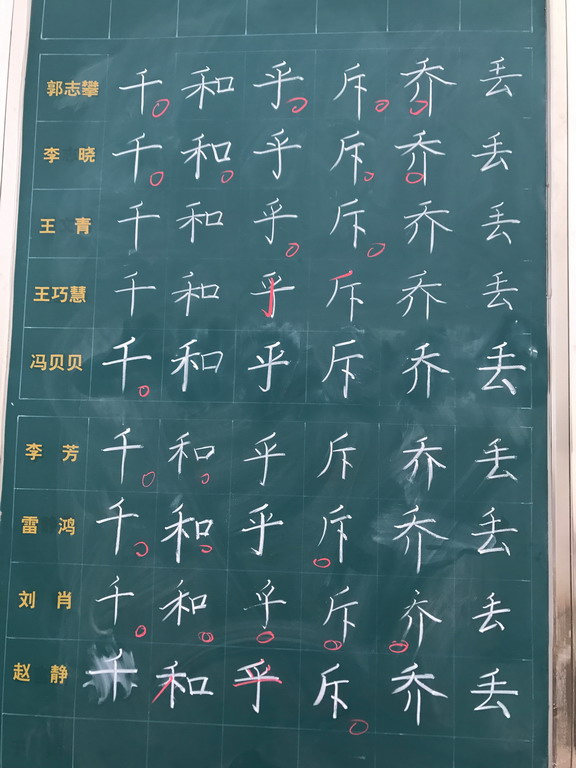 郭志攀 千 和 乎 斥 乔 丢
李 晓 千 和 乎 斥 乔 丢
王 青 千 和 乎 斥 乔 丢
王巧慧 千 和 乎 斥 乔 丢
冯贝贝 千 和 乎 斥 乔 丢
李 芳 千 和 乎 斥 乔 丢
雷 鸿 千 和 乎 斥 乔 丢
刘 肖 千 和 乎 斥 乔 丢
赵 静 千 和 乎 斥 乔 丢